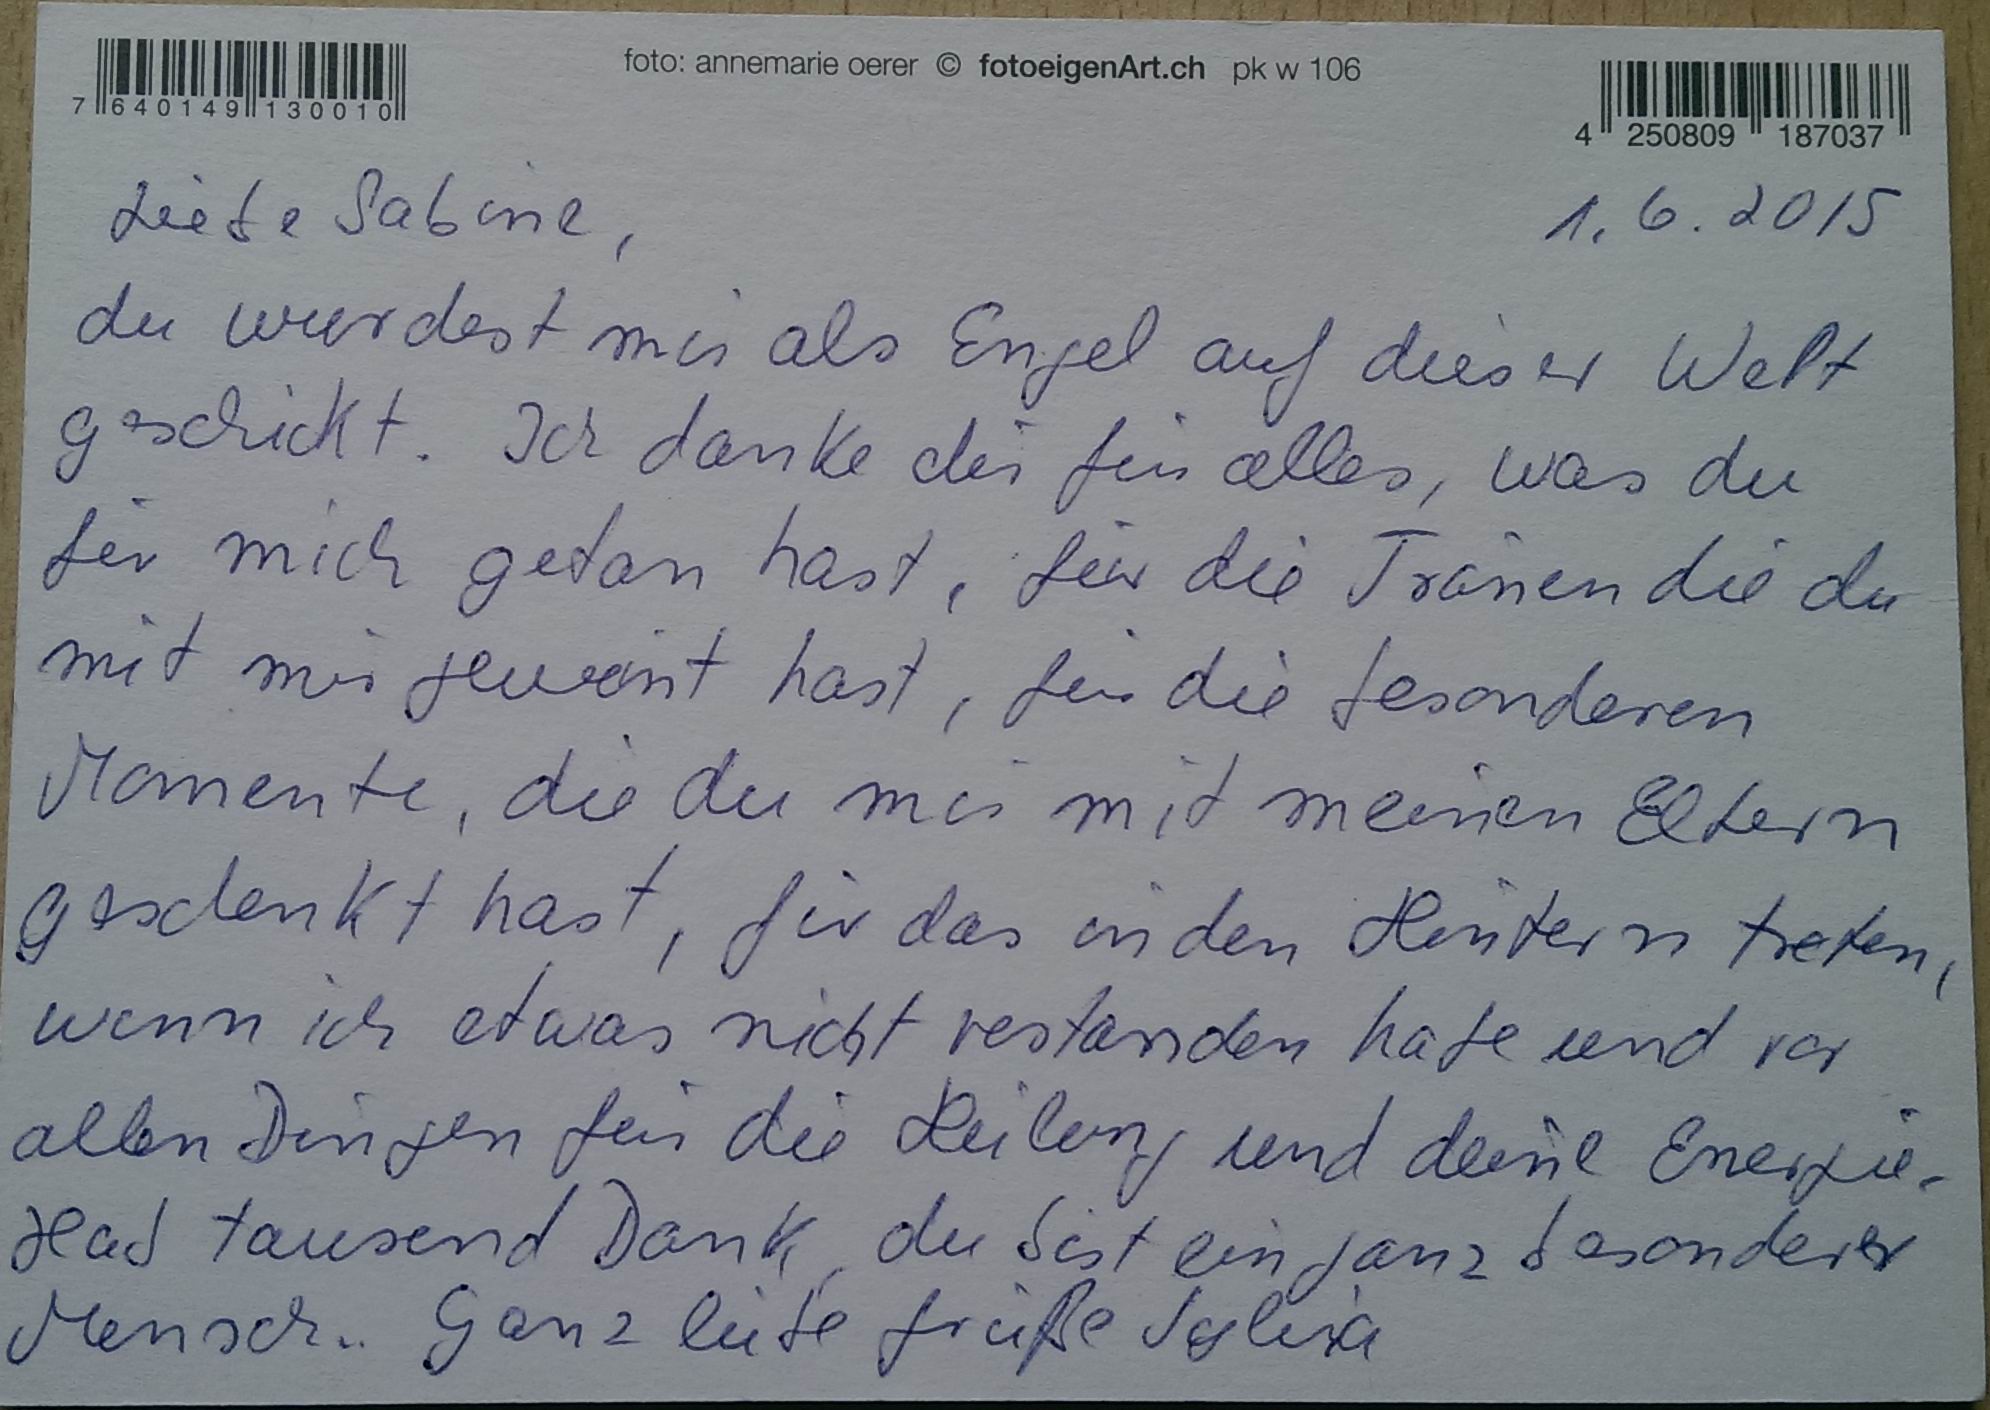 7 640149 130010
foto: annemarie oerer © fotoeigenArt.ch pk w 106
4 250809 187037
1.6.2015
Liebe Sabine,
du wurdest mir als Engel auf dieser Welt
geschickt. Ich danke dir für alles, was du
für mich getan hast, für die Tränen die du
mit mir geweint hast, für die besonderen
Momente, die du mir mit meinen Eltern
geschenkt hast, für das in den Hintern treten,
wenn ich etwas nicht verstanden habe und vor
allen Dingen für die Heilung und deine Energie.
tausend Dank, du bist ein ganz besonderer
Mensch.. Ganz liebe Grüße Sylvia